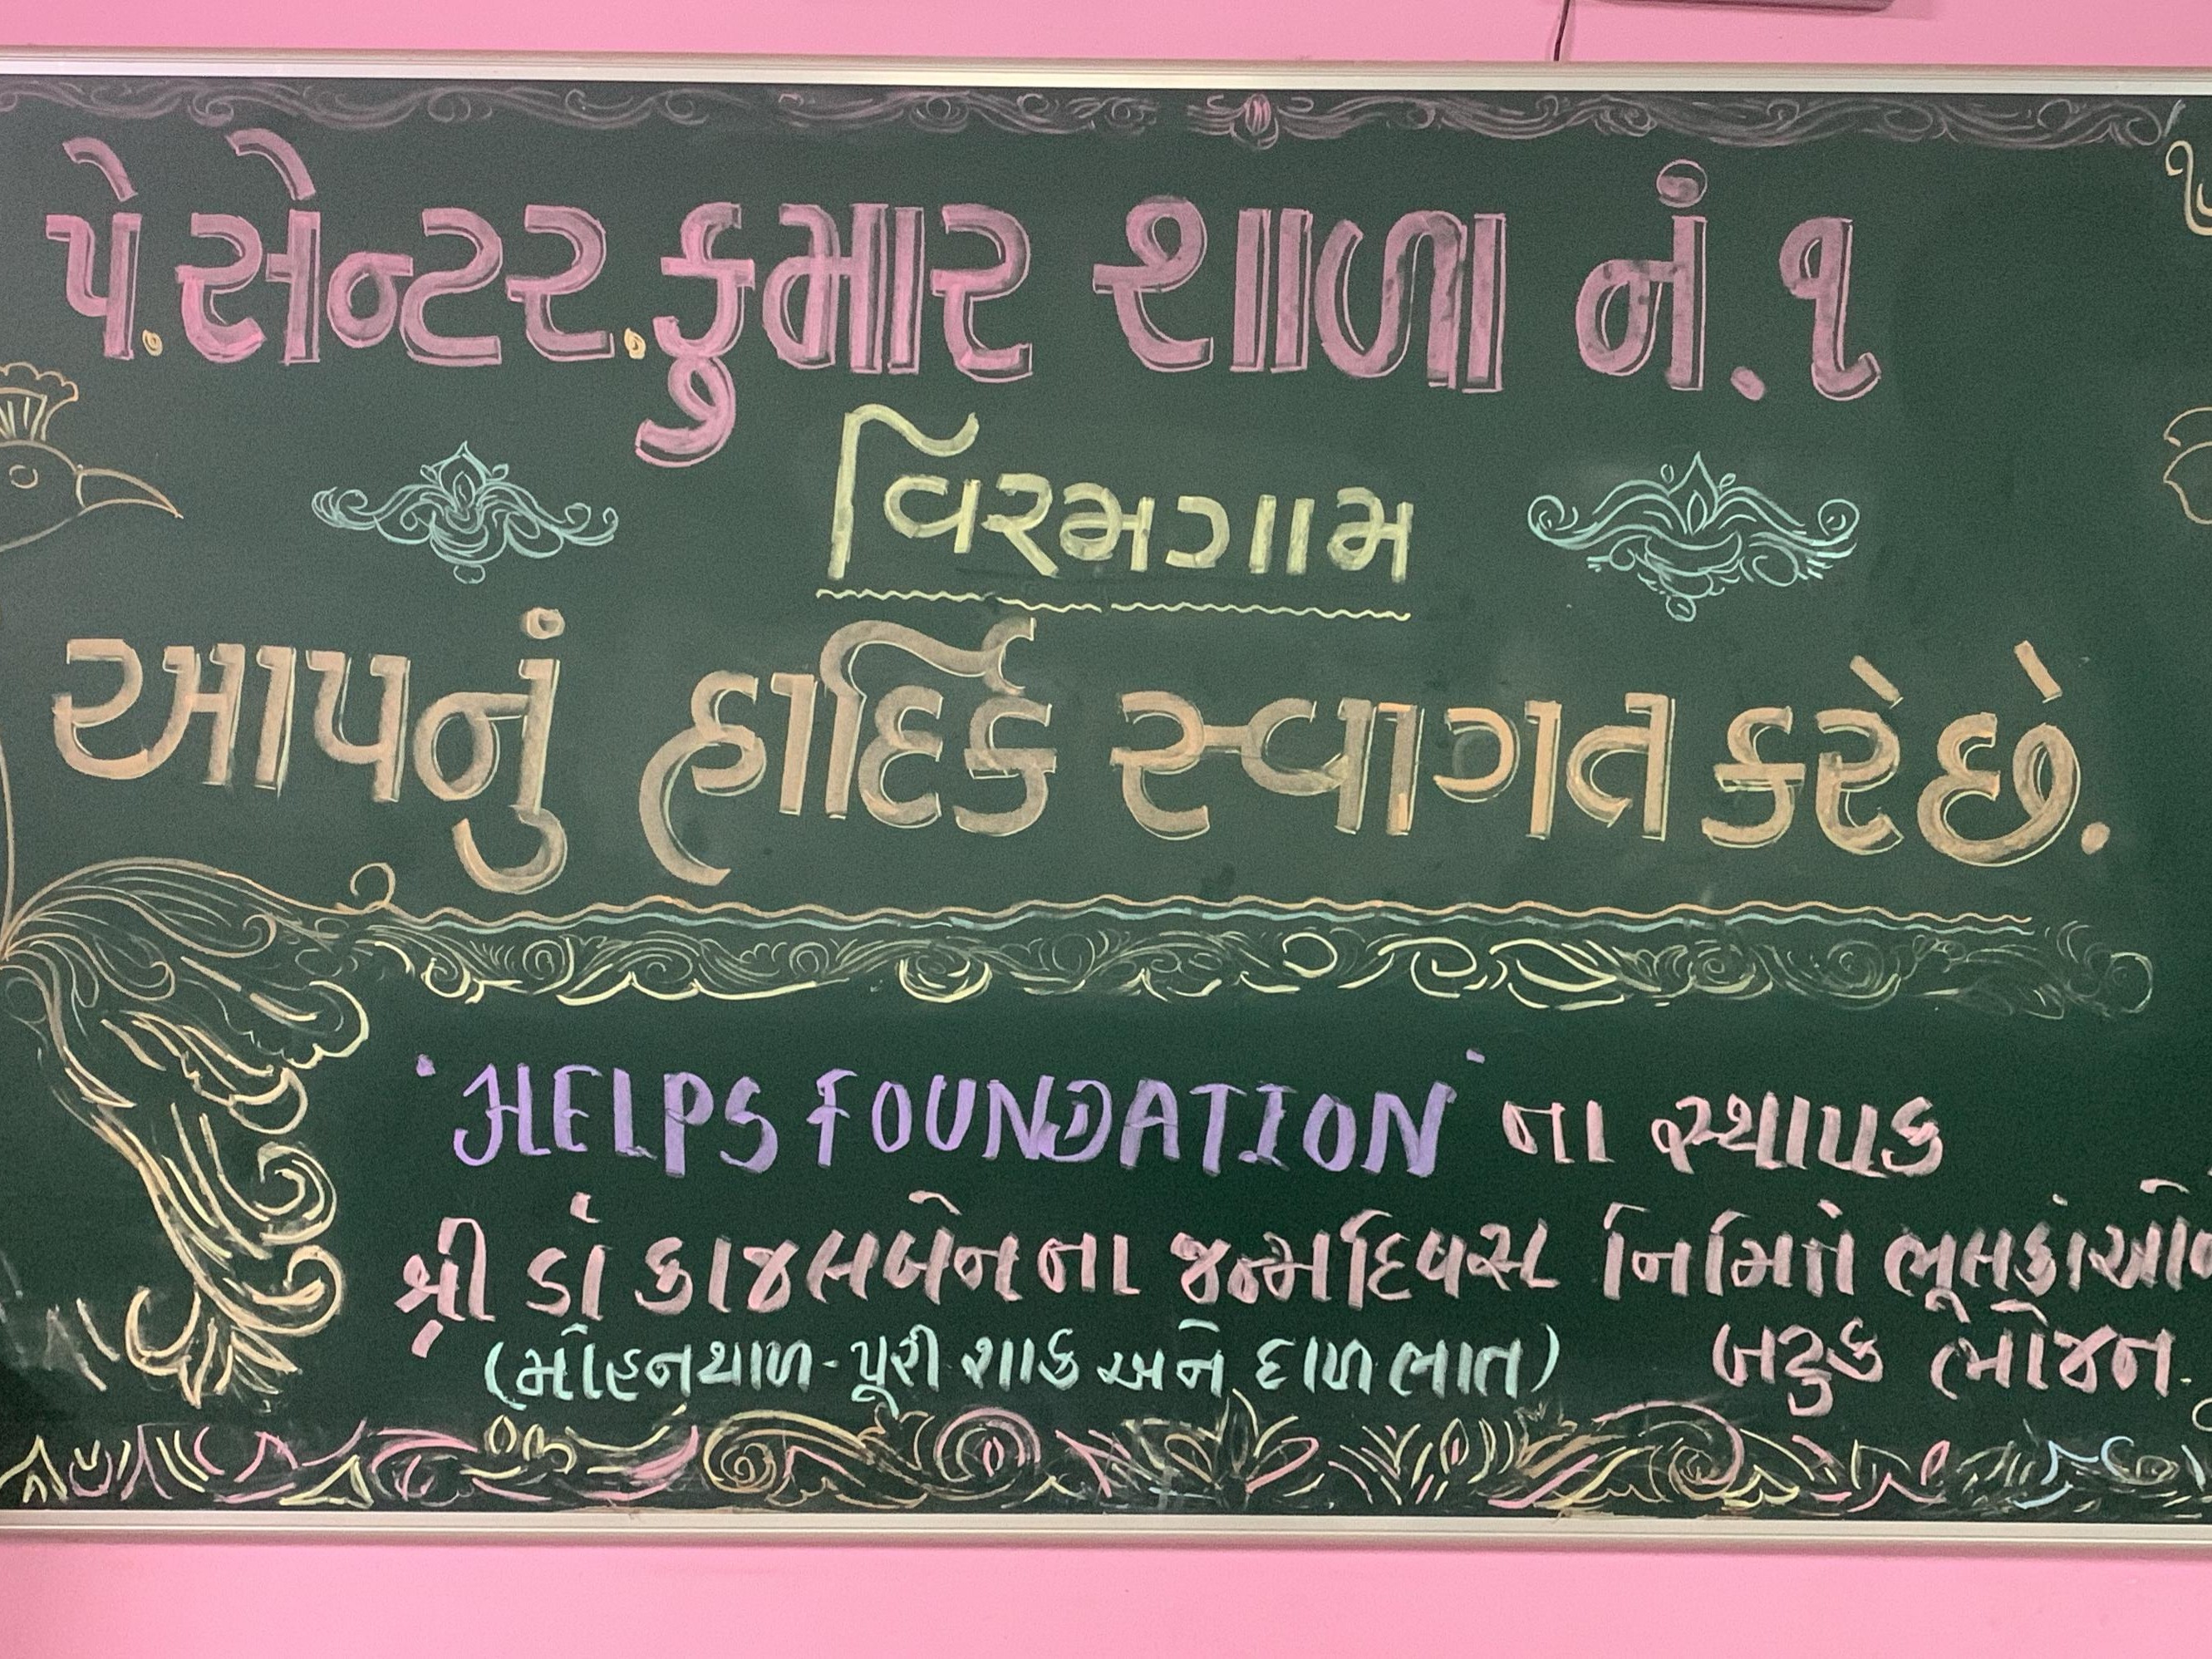 પે.સેન્ટર.કુમાર શાળા નં.૧
વિરમગામ
આપનું હાર્દિક સ્વાગત કરે છે.
"HELPS FOUNDATION" ના સ્થાપક
શ્રી ડૉ કાજલબેન ના જન્મદિવસ નિમિત્તે ભૂલકાંઓ
બટુક ભોજન.
(મોહનથાળ-પૂરી શાક અને દાળ ભાત)